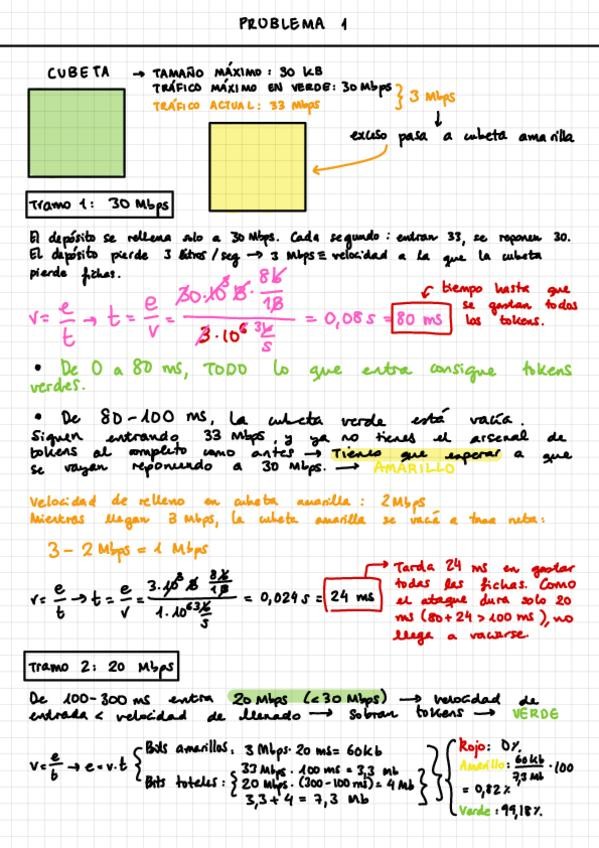 PROBLEMA 1
CUBETA → TAMAÑO MÁXIMO: 30 KB
TRÁFICO MÁXIMO EN VERDE: 30 Mbps
TRÁFICO ACTUAL: 33 Mbps } 3 Mbps
↓
exceso pasa a cubeta amarilla
Tramo 1: 30 Mbps
El depósito se rellena solo a 30 Mbps. Cada segundo: entran 33, se reponen 30.
El depósito pierde 3 litros/seg → 3 Mbps ≡ velocidad a la que la cubeta
pierde fichas.
v = e/t → t = e/v = (30·10³ B · 8b/1B) / (3·10⁶ b/s) = 0,08 s = 80 ms
tiempo hasta que
se gastan todos
los tokens.
• De 0 a 80 ms, TODO lo que entra consigue tokens
verdes.
• De 80-100 ms, la cubeta verde está vacía.
Siguen entrando 33 Mbps, y ya no tienes el arsenal de
tokens al completo como antes → Tienes que esperar a que
se vayan reponiendo a 30 Mbps. → AMARILLO
Velocidad de relleno en cubeta amarilla: 2 Mbps
Mientras llegan 3 Mbps, la cubeta amarilla se vacía a tasa neta:
3 - 2 Mbps = 1 Mbps
v = e/t → t = e/v = (3·10³ B · 8b/1B) / (1·10⁶ b/s) = 0,024 s = 24 ms
→ Tarda 24 ms en gastar
todas las fichas. Como
el ataque dura solo 20
ms (80 + 24 > 100 ms), no
llega a vaciarse.
Tramo 2: 20 Mbps
De 100-300 ms entra 20 Mbps (< 30 Mbps) → velocidad de
entrada < velocidad de llenado → sobran tokens → VERDE
v = e/t → e = v·t
Bits amarillos: 3 Mbps · 20 ms = 60 kb
Bits totales: 33 Mbps · 100 ms = 3,3 mb
20 Mbps · (300 - 100 ms) = 4 Mb
3,3 + 4 = 7,3 Mb
Rojo: 0%
Amarillo: 60 kb / 7,3 Mb · 100
= 0,82%
Verde: 99,18%.